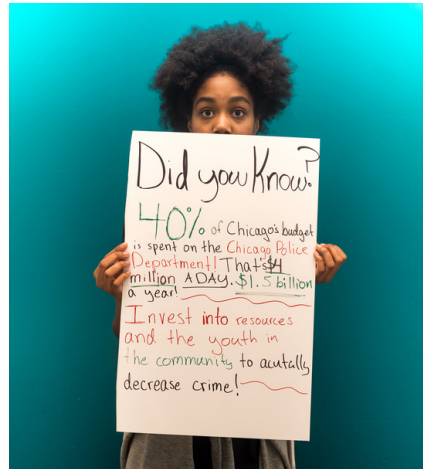 Did you Know?
40% of Chicago's budget
is spent on the Chicago Police
Department! That's $4
million A DAY. $1.5 billion
a year!
Invest into resources
and the youth in
the community to acutally
decrease crime!